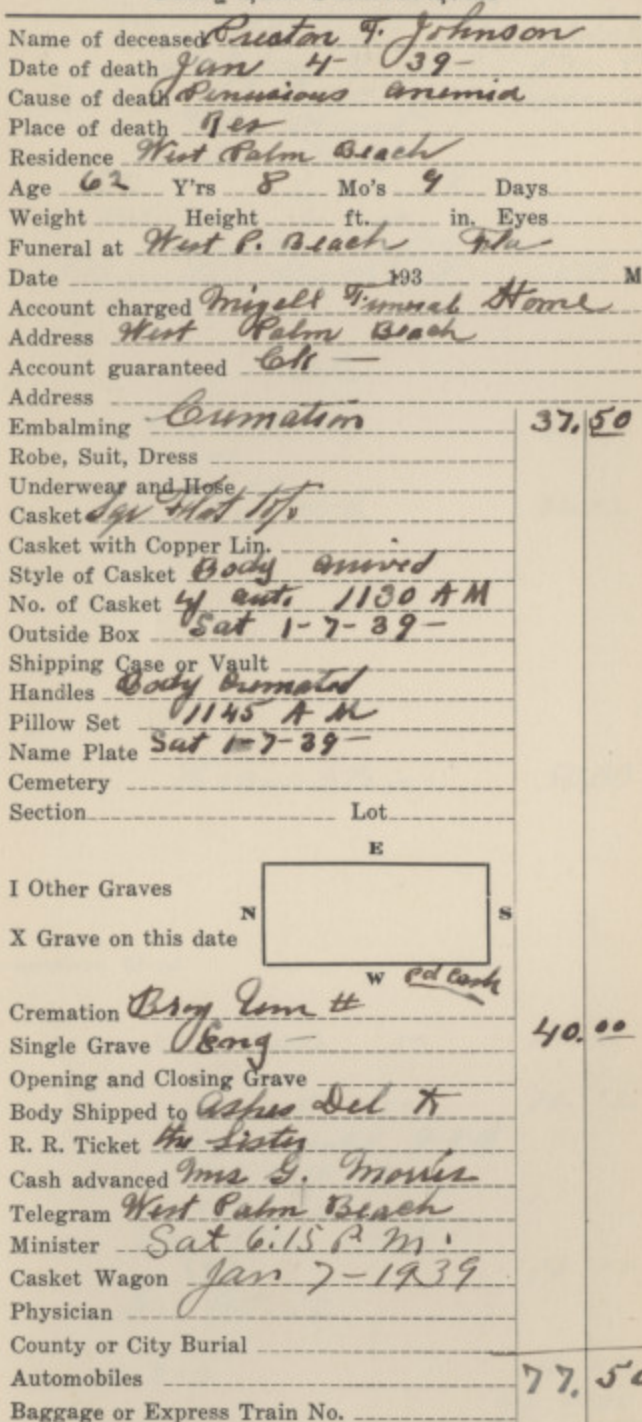 Name of deceased Preston F. Johnson
Date of death Jan 4- 39-
Cause of death Penusious anemia
Place of death Res
Residence West Palm Beach
Age 62 Y'rs 8 Mo's 9 Days
Weight Height ft. in. Eyes
Funeral at West P. Beach Fla
Date 193 M
Account charged Mizell Funeral Home
Address West Palm Beach
Account guaranteed Ck —
Address
Embalming Cremation 37.50
Robe, Suit, Dress
Underwear and Hose
Casket Sqr Flat
Casket with Copper Lin.
Style of Casket Body arrived
No. of Casket by aut. 1130 AM
Outside Box Sat 1-7-39-
Shipping Case or Vault
Handles Body Cremated
Pillow Set 1145 A M
Name Plate Sat 1-7-39-
Cemetery
Section Lot
E
I Other Graves
N S
X Grave on this date
W Pd Cash
Cremation Urn #
Single Grave Eng — 40.00
Opening and Closing Grave
Body Shipped to Ashes Del to
R. R. Ticket the Sister
Cash advanced Mrs G. Morris
Telegram West Palm Beach
Minister Sat 6:15 P.M.
Casket Wagon Jan 7-1939
Physician
County or City Burial
Automobiles 77.50
Baggage or Express Train No.